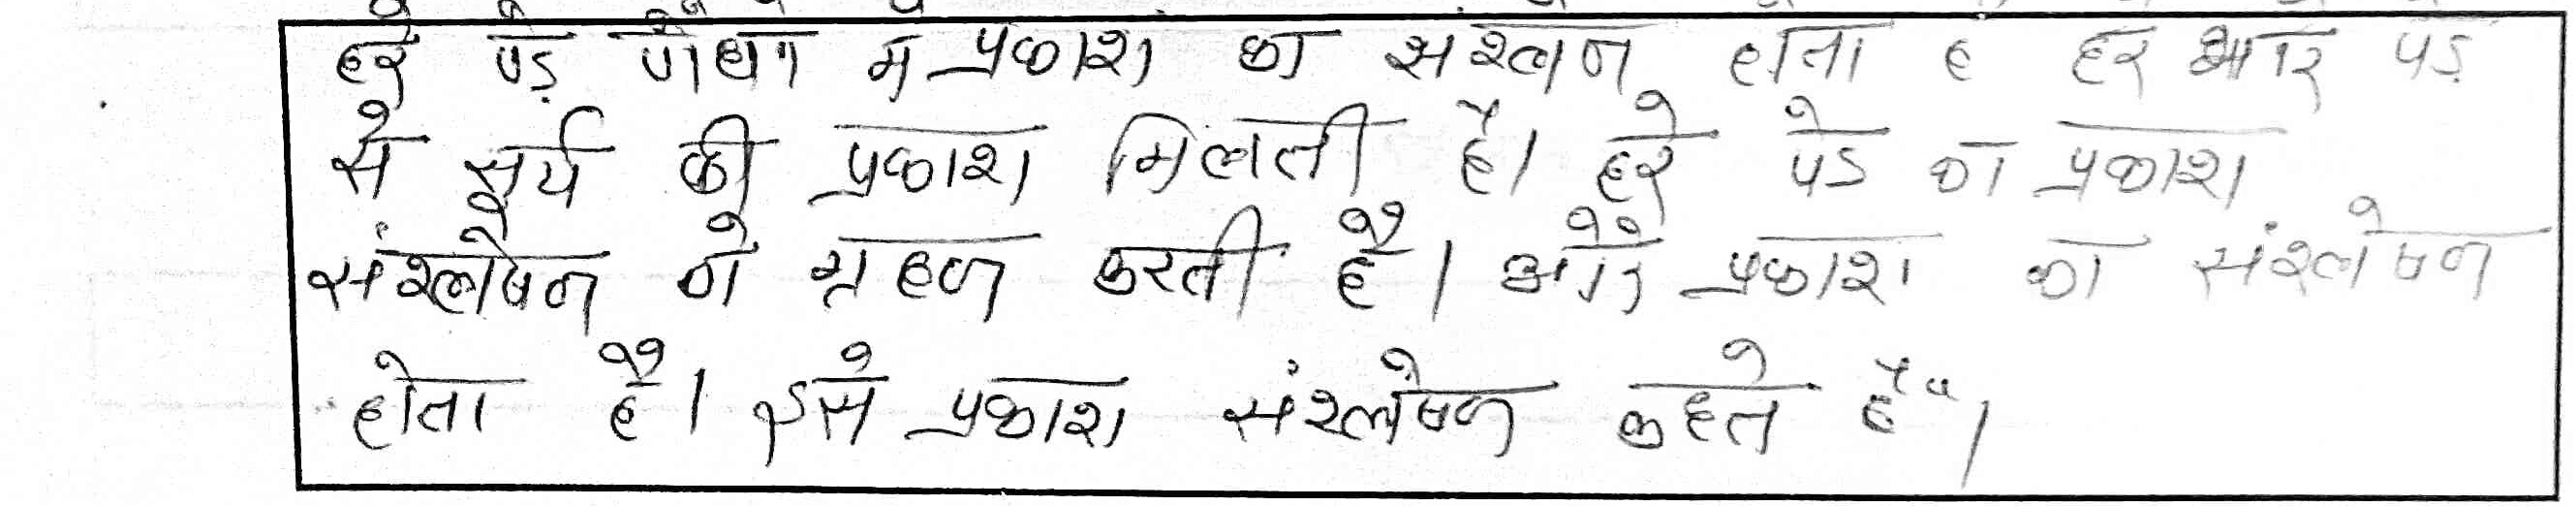 हरे पेड़ पौधों में प्रकाश का संश्लेषण होता है हरे और पेड़
से सूर्य की प्रकाश मिलती है। हरे पेड का प्रकाश
संश्लेषण को ग्रहण करती है। और प्रकाश का संश्लेषण
होता है। इसे प्रकाश संश्लेषण कहते है"।